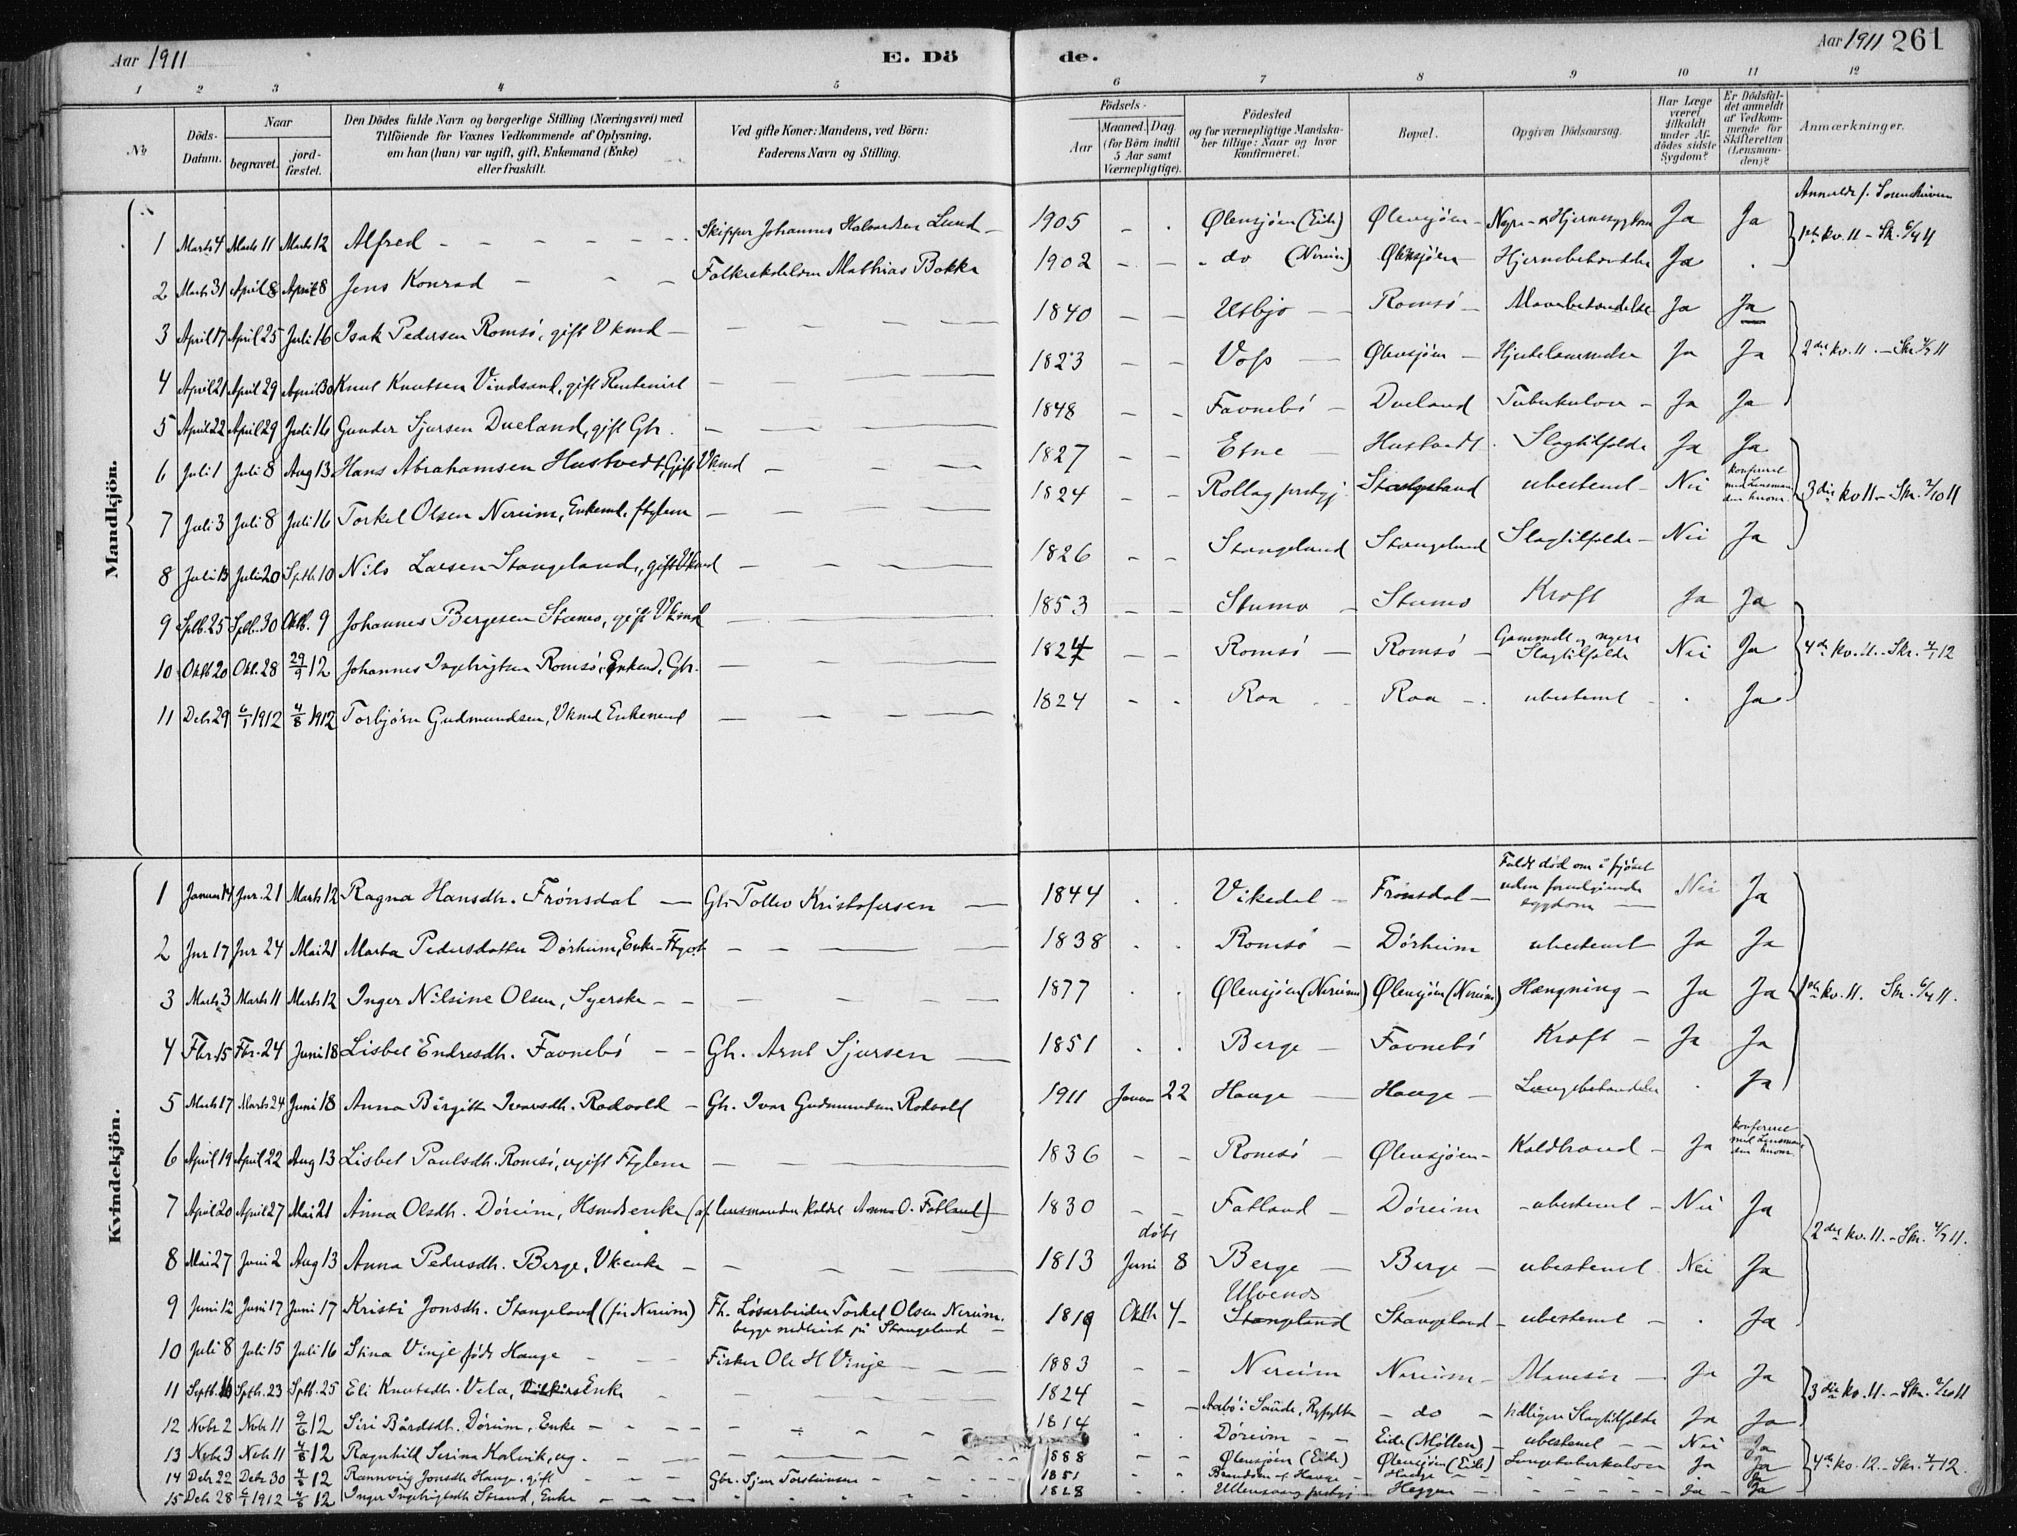 Aar 1911 E. Dö de. Aar 1911 261
1 2 3 4 5 6 7 8 9 10 11 12
No
Döds-Datum.
Naar begravet. jordfæstet.
Den Dödes fulde Navn og borgerlige Stilling (Næringsvei) med Tilföiende for Voxnes Vedkommende af Oplysning, om han (hun) var ugift, gift, Enkemand (Enke) eller fraskilt.
Ved gifte Koner: Mandens, ved Börn: Faderens Navn og Stilling.
Födsels-
Aar Maaned. Dag. (for Börn indtil 5 Aar samt Værnepligtige).
Födested og for værnepligtige Mandskaber tillige: Naar og hvor konfirmeret.
Bopæl.
Opgiven Dödsaarsag.
Har Læge været tilkaldt under Afdödes sidste Sygdom?
Er Dödsfaldet anmeldt af Vedkommende for Skifteretten (Lensmanden)?
Anmærkninger.
Mandkjön.
1 Marts 4 Marts 11 Marts 12 Alfred - Skipper Johannes Halvardsen Lund - 1905 Ølensjøen (Eide) Ølensjøen - Nyre- & Hjernesygdom Ja Ja 1ste kv. 11 - Skr. 6/4 11
2 Marts 31 April 8 April 8 Jens Konrad - Mathias Bakke 1902 - do (Nereim) Ølensjøen - Hjernebetændelse Ja
3 April 17 April 25 Juli 16 Isak Pedersen Romsö, gift Vkmd - 1840 Utbjo - Romsö - Mavebetændelse Ja Ja
4 April 21 April 29 April 30 Knut Knutsen Vindsand, gift Rentenist - 1823 Voss - Ølensjøen - Hjertelammelse Ja Ja 2det kv. 11. - Skr 4/7 11
5 April 22 April 29 Juli 16 Gunder Sjursen Dueland, gift Gbr. - 1848 Favnebö - Dueland Tuberkulose - Ja Ja
6 Juli 1 Juli 8 Aug 13 Hans Abrahamsen Hustvedt, Gift Vkmd - 1827 Etne - Hustvedt Slagtilfælde Ja Ja
7 Juli 3 Juli 8 Juli 16 Torkel Olsen Nereim, Enkemd. ftglem - 1824 Rollag prstgj. Stangeland ubestemt - Nei konfereret med Lensmanden herom 3die kv 11 - Skr. 2/10 11
8 Juli 13 Juli 20 Sptb. 10 Nils Larsen Stangeland, gift Vkmd - 1826 Stangeland Stangeland Slagtilfælde - Nei Ja
9 Sptb. 25 Sptb. 30 Oktb. 9 Johannes Bergesen Stumo, gift Vkmd - 1853 Stumo - Stumo Kræft Ja Ja
10 Oktb 20 Okt. 28 29/9 12 Johannes Ingebrigtsen Romsö, Enkemd, Gbr. - 1824 Romsö - Romsö - Gammelt og nyere Slagtilfælde Nei Ja 4de kv. 11. - Skr. 4/1 12
11 Debr 29 6/1 1912 4/8 1912 Torbjörn Gudmundsen, Vkmd Enkemand - 1824 Roa - Roa - ubestemt Ja
Kvindekjön.
1 Januar 14 Jnr. 21 Marts 12 Ragna Hansdtr. Frönsdal - Gbr. Tollev Kristofersen - 1844 Vikedal - Frönsdal - Faldt död om i fjöset uden forudgaaende sygdom Nei Ja
2 Jnr 17 Jnr 24 Mai 21 Marta Pedersdatter Dörheim, Enke - 1838 Romsö - Dörheim ubestemt Ja Ja
3 Marts 3 Marts 11 Marts 12 Inger Nilsine Olsen, Syerske - 1877 Ølensjøen (Nereim) Ølensjøen (Nereim) Hængning - Ja Ja 1ste kv. 11. Skr. 6/4 11.
4 Fbr. 15 Fbr. 24 Juni 18 Lisbet Endresdtr. Favnebö - Gbr. Arnt Sjursen - 1851 Berge - Favnebö Kræft - Ja Ja
5 Marts 17 Marts 24 Juni 18 Anna Birgitte Ivarsdtr. Rodvold - Gbr. Ivar Gudmundsen Rodvold 1911 Januar 22 Hauge - Hauge - Lungebetændelse Ja
6 April 19 April 22 Aug 13 Lisbet Paulsdtr. Romsö, ugift Ftglem - 1836 Romsö - Ølensjøen - Koldbrand - Ja konfereret med Lensmanden herom
7 April 20 April 27 Mai 21 Anna Olsdtr. Döreim, Hsmdsenke (af lensmanden kaldet Anna O. Fatland) - 1830 Fatland - Döreim - ubestemt - Nei Ja 2det kv. 11. - Skr. 4/7 11.
8 Mai 27 Juni 2 Aug 13 Anna Pedersdtr. Berge, Vk.enke - 1813 döbt Juni 8 Berge - Berge - ubestemt Nei Ja
9 Juni 12 Juni 17 Juni 17 Kristi Jonsdtr. Stangeland (för Nereim) Fh. Løsarbeider Torkel Olsen Nereim. begge nedbrudt på Stangeland - 1819 Oktb 4 Ulvenes Stangeland Stangeland - ubestemt - Ja
10 Juli 8 Juli 15 Juli 16 Stina Vinje födt Hauge - Fisker Ole H Vinje - 1883 Nereim Nereim - Ja Ja
11 Septb. 16 Sptb. 23 Sptb. 25 Eli Knutsdtr. Vela, Enke - 1824 Aabö i Saude, Ryfylke - do - Slagtilfælde Ja Ja 3die kv. 11. - Skr. 2/10 11
12 Nobr 2 Nobr 11 9/6 12 Siri Bårdsdtr. Döreim, Enke - 1814 Döreim - Eide (Möllen) - ubestemt - Nei Ja
13 Nobr 3 Nobr 11 4/8 12 Ragnhild Serine Kalvik, ug. - 1888 Ølensjøen (Eide) Ølensjøen (Eide) Lungetuberkulose Ja Ja 4de kv. 12. - Skr. 4/1 12.
14 Debr 22 Debr 30 4/8 12 Rannveig Jonsdtr Hauge, gift - Gbr. Sjur Torsteinsen - 1851 Hauge - Hauge Ja
15 Debr 28 6/1 1912 4/8 12 Inger Ingebrigtsdtr Strand, Enke - 1828 Ullensvang prstgj. - Heggen - Ja Ja